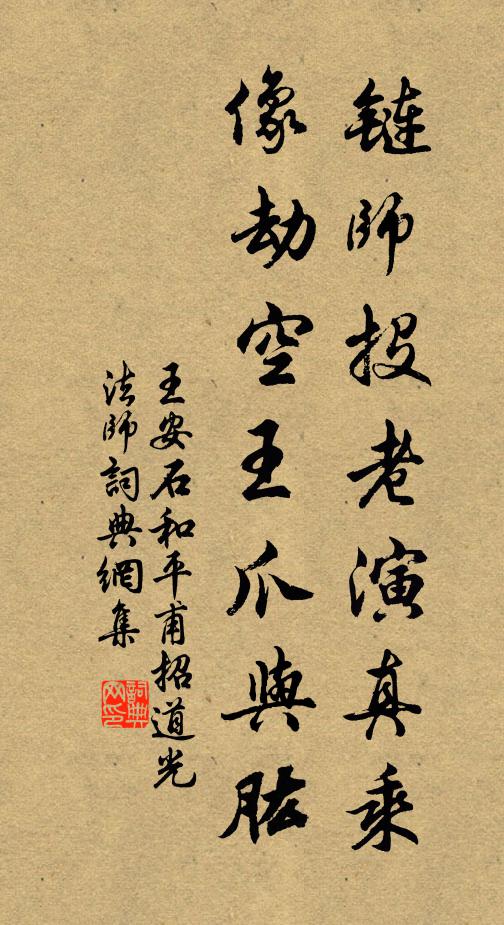 鏈師投老演真乘
像劫空王爪與肱
王安石和平甫招道光
法師詞典網集
詞典
网印